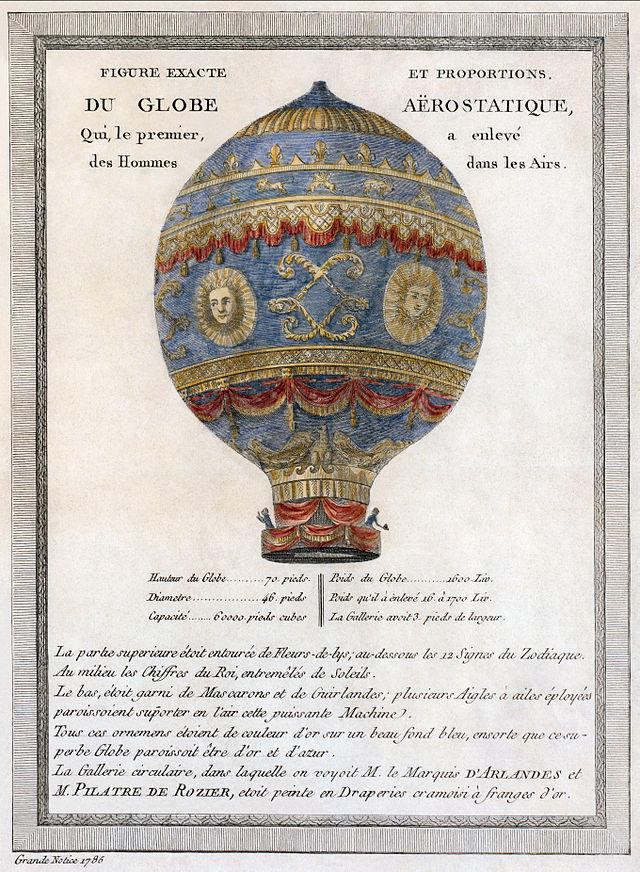 FIGURE EXACTE ET PROPORTIONS.
DU GLOBE AËROSTATIQUE,
Qui, le premier, a enlevé
des Hommes dans les Airs.
Hauteur du Globe..........70. pieds.
Diametre.................46. pieds
Capacité........60000.pieds cubes
Poids du Globe...........1600 Liv.
Poids qu'il à énlevé 16. à 1700 Liv.
La Gallerie avoit 3. pieds de largeur.
La partie superieure étoit entourée de Fleurs-de-lys; au-dessous les 12 Signes du Zodiaque.
Au milieu les Chiffres du Roi, entremêlés de Soleils.
Le bas, étoit garni de Mascarons et de Guirlandes; plusieurs Aigles à ailes éployées
paroissoient suporter en l'air cette puissante Machine.
Tous ces ornemens étoient de couleur d'or sur un beau fond bleu, ensorte que ce su-
perbe Globe paroissoit être d'or et d'azur.
La Gallerie circulaire, dans laquelle on voyoit M. le Marquis D'ARLANDES et
M. PILATRE DE ROZIER, etoit peinte en Draperies cramoisi à franges d'or.
Grande Notice 1786